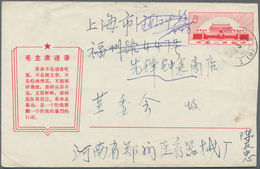 毛主席语录
革命不是请客吃
饭，不是做文章，不
是绘画绣花，不能那
样雅致，那样从容不
迫，文质彬彬，那样
温良恭俭让。革命是
暴动，是一个阶级推
翻一个阶级的暴烈的
行动。
8
上海市
福州路447号
先锋钟表商店
革委会 收
河南省郑州医疗器械厂